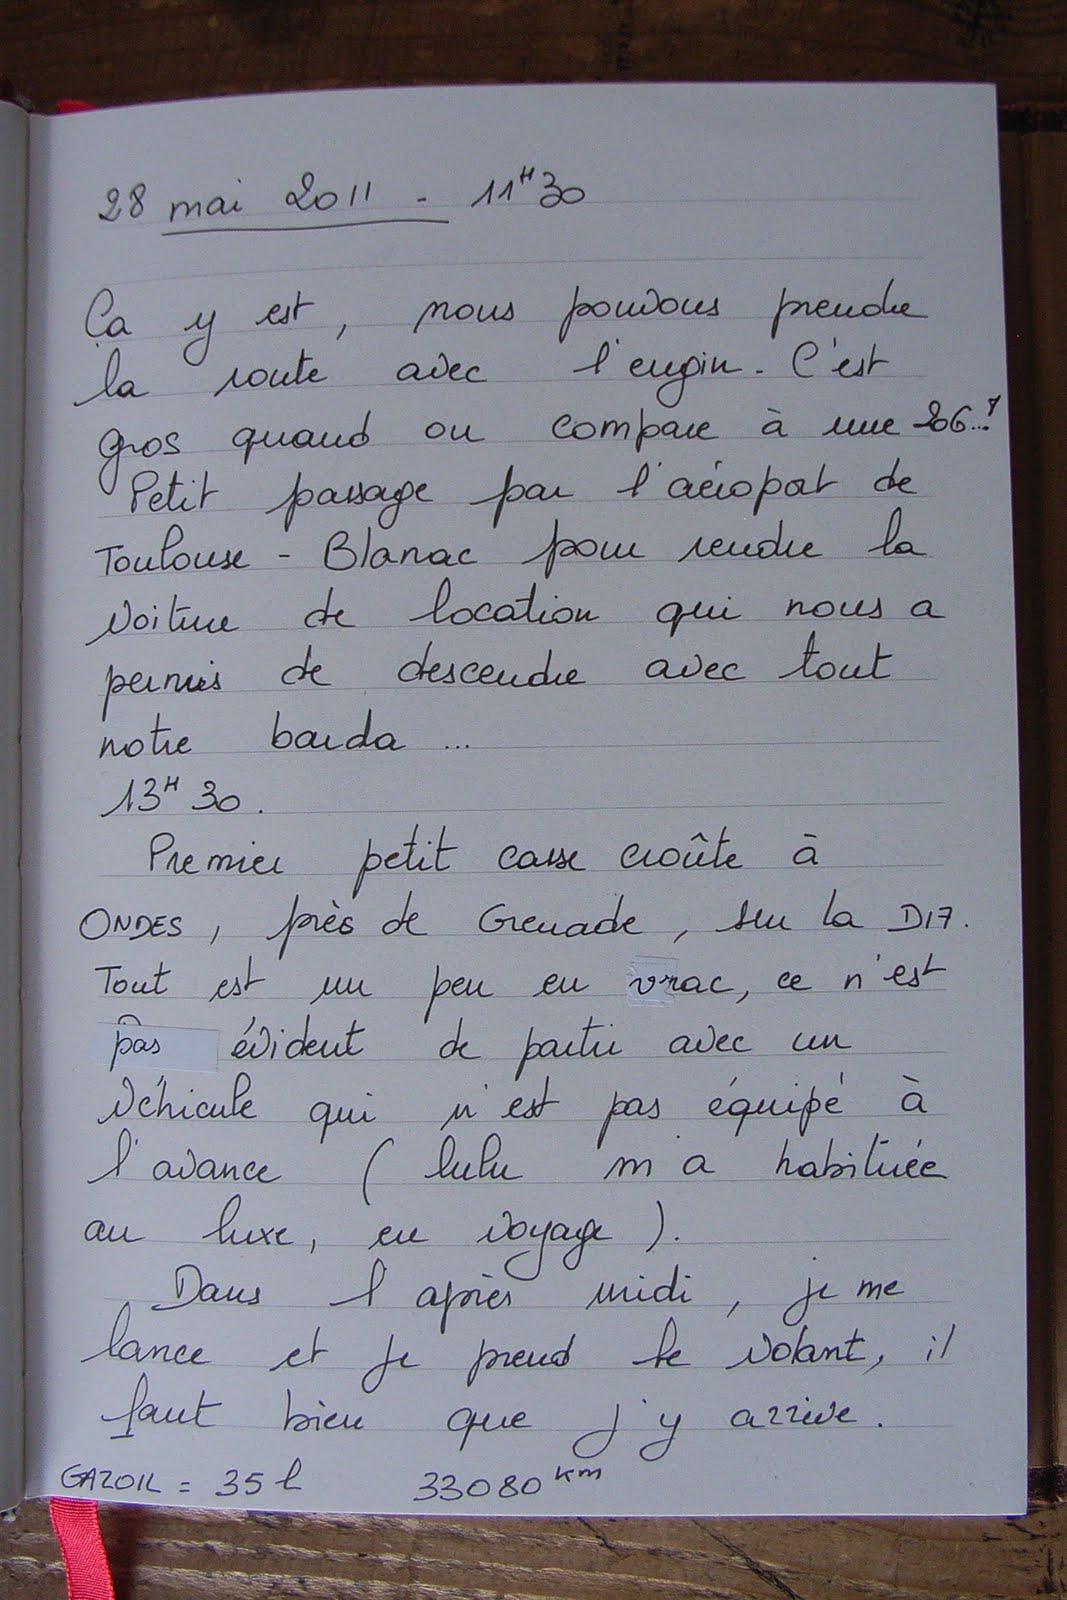 28 mai 2011 - 11H30
Ça y est, nous pouvons prendre
la route avec l'engin. C'est
gros quand on compare à une 206...!
Petit passage par l'aéroport de
Toulouse - Blanac pour rendre la
voiture de location qui nous a
permis de descendre avec tout
notre barda ...
13H30.
Premier petit casse croûte à
ONDES, près de Grenade, sur la D17.
Tout est un peu en vrac, ce n'est
pas évident de partir avec un
véhicule qui n'est pas équipé à
l'avance (lulu m'a habituée
au luxe, en voyage).
Dans l'après midi, je me
lance et je prend le volant, il
faut bien que j'y arrive.
GAZOIL = 35 l 33080 km